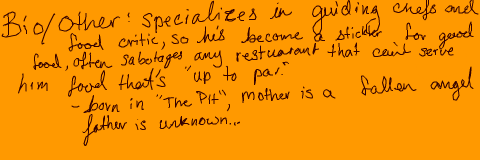 Bio/Other: specializes in guiding chefs and
food critic, so he's become a stickler for good
food, often sabotages any restuarant that can't serve
him food that's "up to par."
- born in "The Pit", mother is a fallen angel
father is unknown...